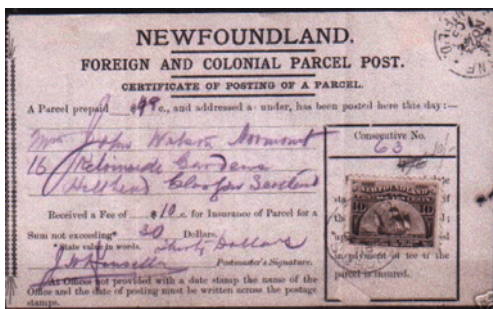 NEWFOUNDLAND.
FOREIGN AND COLONIAL PARCEL POST.
CERTIFICATE OF POSTING OF A PARCEL.
A Parcel prepaid 99 c., and addressed as under, has been posted here this day:—
Mrs John Watson
16 Gardens
Hillhead Scotland
Consecutive No.
63
Received a Fee of $10 c. for Insurance of Parcel for a
Sum not exceeding* 30 Dollars.
*State value in words. Thirty Dollars
Postmaster's Signature.
At Offices not provided with a date stamp the name of the
Office and the date of posting must be written across the postage
stamps.
NEWFOUNDLAND
10 CENTS 10
in payment of fee if the
parcel is insured.